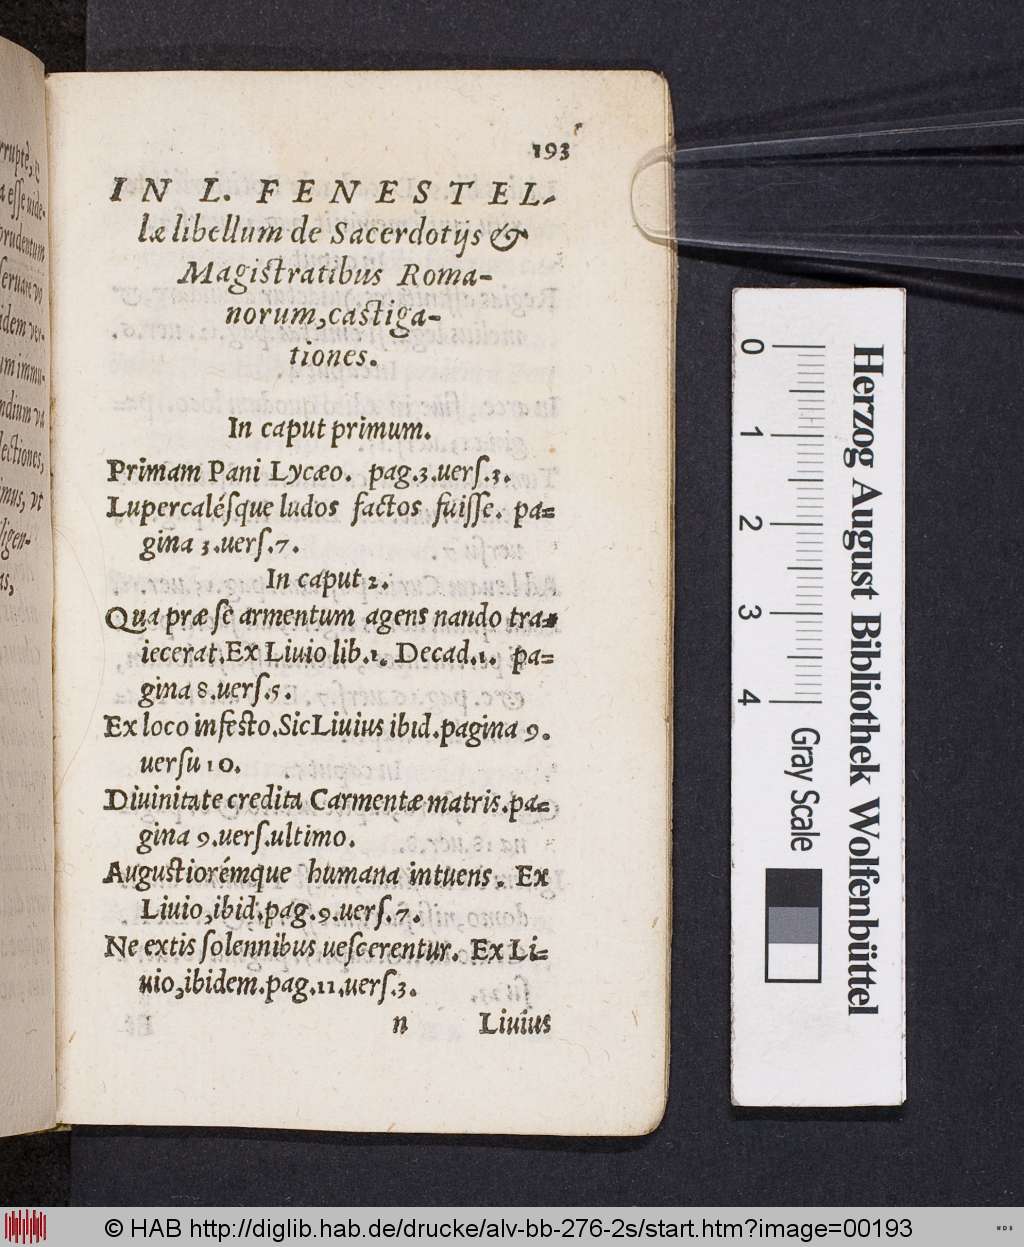 193
IN L. FENESTEL-
læ libellum de Sacerdotijs &
Magistratibus Roma-
norum, castiga-
tiones.
In caput primum.
Primam Pani Lycæo. pag.3.uerſ.3.
Lupercaléſque ludos factos fuiſſe. pa=
gina 3.uerſ.7.
In caput 2.
Qua præ ſe armentum agens nando tra=
iecerat. Ex Liuio lib.1. Decad.1. pa=
gina 8.uerſ.5.
Ex loco infeſto. Sic Liuius ibid. pagina 9.
uerſu 10.
Diuinitate credita Carmentæ matris. pa=
gina 9.uerſ.ultimo.
Auguſtiorémque humana intuens. Ex
Liuio, ibid. pag.9.uerſ.7.
Ne extis ſolennibus ueſcerentur. Ex Li=
uio, ibidem. pag.11.uerſ.3.
n Liuius
rrupte, &
a eſſe uide-
prudentum
ſeruare
idem ver-
um immu-
ndium
lectiones,
imus, ut
ligen-
as,
0 1 2 3 4
Gray Scale
Herzog August Bibliothek Wolfenbüttel
© HAB http://diglib.hab.de/drucke/alv-bb-276-2s/start.htm?image=00193
WDB